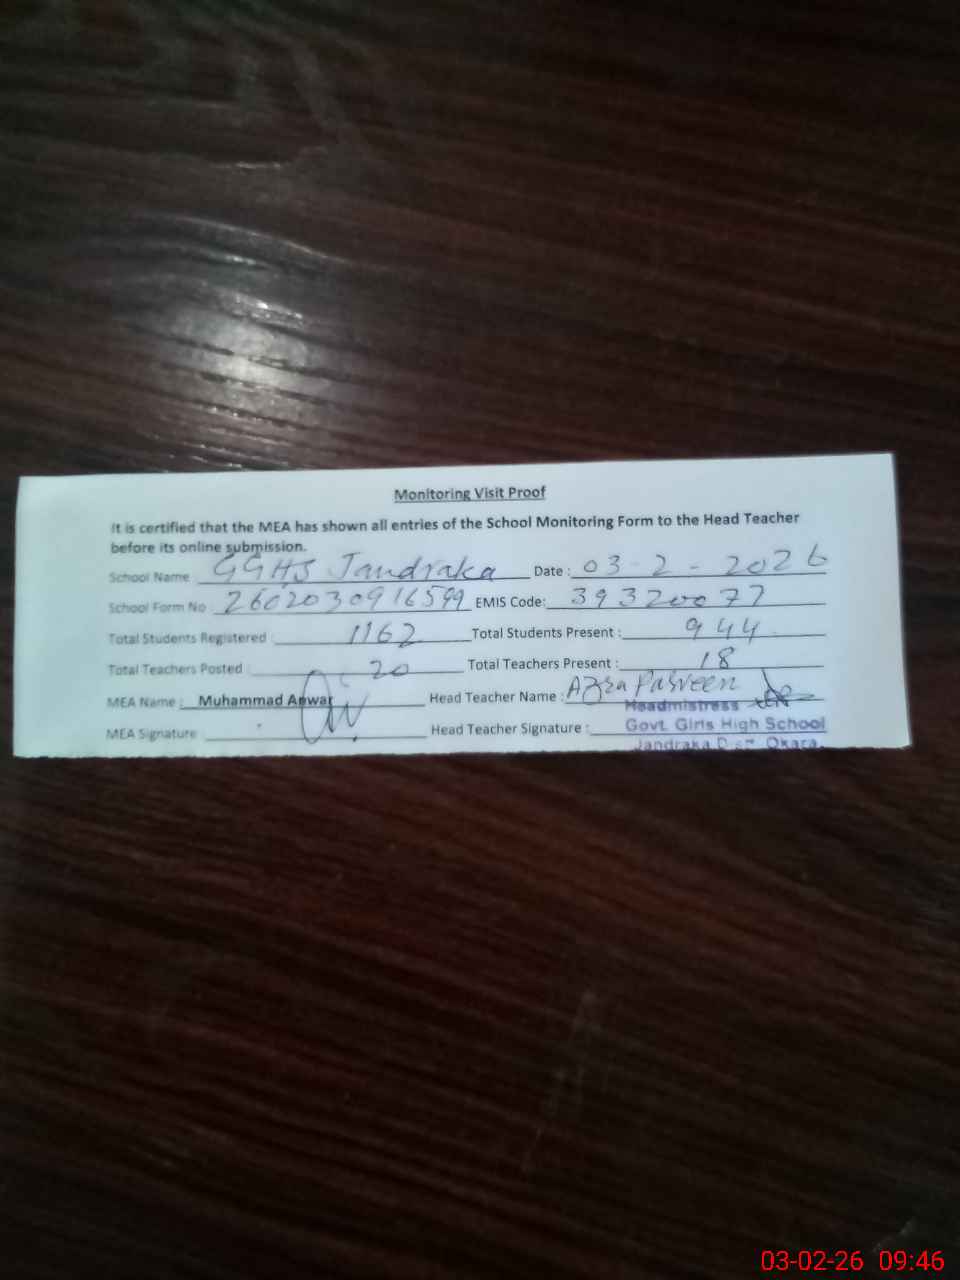 Monitoring Visit Proof
It is certified that the MEA has shown all entries of the School Monitoring Form to the Head Teacher
before its online submission.
School Name GGHS Jandraka Date : 03-2-2026
School Form No 2602030916599 EMIS Code: 39320077
Total Students Registered : 1162 Total Students Present : 944
Total Teachers Posted : 20 Total Teachers Present : 18
MEA Name : Muhammad Anwar Head Teacher Name : Azra Parveen
Headmistress
MEA Signature Head Teacher Signature : Govt. Girls High School
Jandraka Okara
03-02-26 09:46